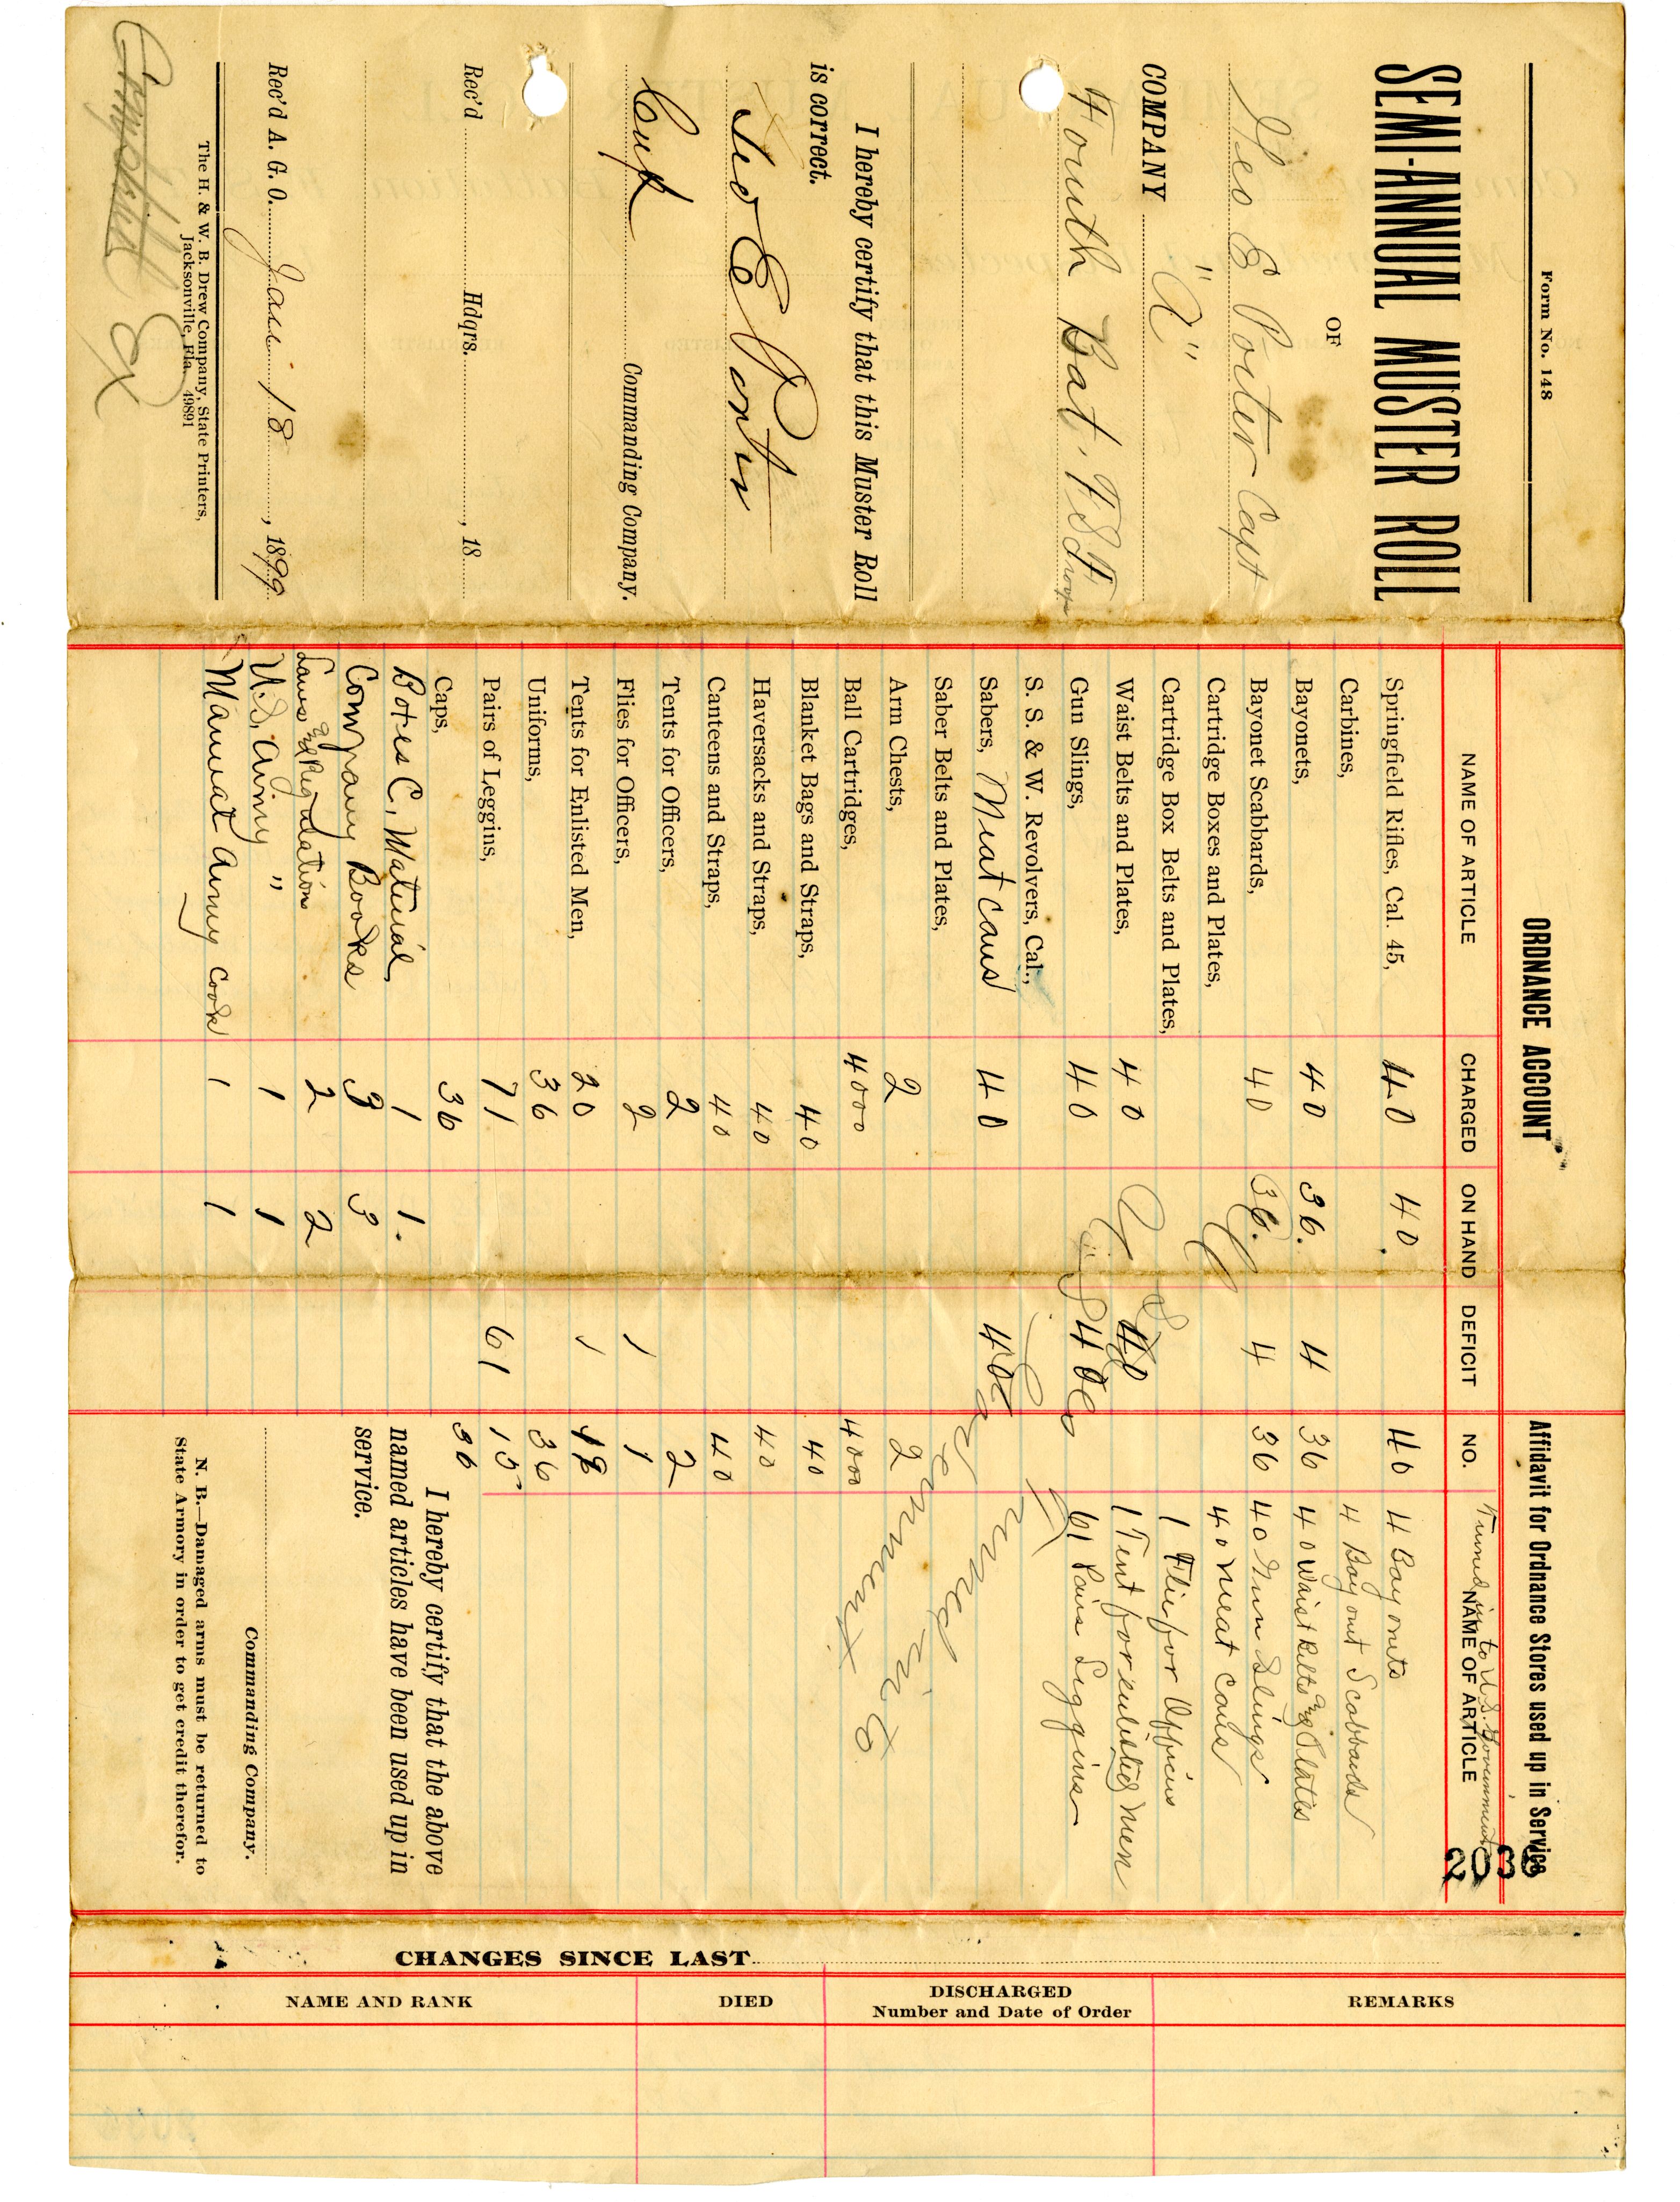 Form No. 148
SEMI-ANNUAL MUSTER ROLL
OF
Geo E Porter Capt
COMPANY "A"
Fourth Bat. F S Troops
I hereby certify that this Muster Roll
is correct.
Geo E Porter
Capt
Commanding Company.
Rec'd Hdqrs. , 18
Rec'd A. G. O. Jan 18 , 1899
The H. & W. B. Drew Company, State Printers,
Jacksonville, Fla. 49891
ORDNANCE ACCOUNT
NAME OF ARTICLE CHARGED ON HAND DEFICIT NO.
Springfield Rifles, Cal. 45, 40 40. 40
Carbines,
Bayonets, 40 36. 4 36
Bayonet Scabbards, 40 36. 4 36
Cartridge Boxes and Plates,
Cartridge Box Belts and Plates,
Waist Belts and Plates, 40 40
Gun Slings, 40 40
S. S. & W. Revolvers, Cal.,
Sabers, Meat cans 40 40
Saber Belts and Plates,
Arm Chests, 2 2
Ball Cartridges, 4000 4000
Blanket Bags and Straps, 40 40
Haversacks and Straps, 40 40
Canteens and Straps, 40 40
Tents for Officers, 2 2
Flies for Officers, 2 1 1
Tents for Enlisted Men, 20 1
Uniforms, 36 36
Pairs of Leggins, 71 61 15
Caps, 36 36
C. Material 1 1.
Company Books 3 3
Laws and Regulations 2 2
U.S. Army " 1 1
Manual Army Cook 1 1
Affidavit for Ordnance Stores used up in Service
Turned in to U.S. Government
NAME OF ARTICLE
2036
4 Bayonets
4 Bayonet Scabbards
40 Waist Belts and Plates
40 Gun Slings
40 Meat cans
1 Flie for Officers
1 Tent for enlisted men
61 Pairs Leggins
I hereby certify that the above
named articles have been used up in
service.
Commanding Company.
N. B.—Damaged arms must be returned to
State Armory in order to get credit therefor.
CHANGES SINCE LAST
NAME AND RANK DIED DISCHARGED REMARKS
Number and Date of Order